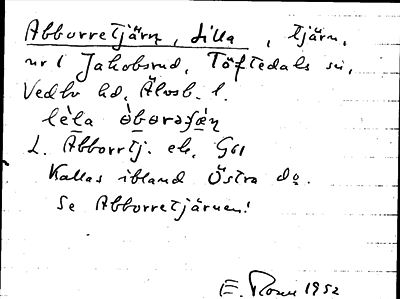 Abborretjärn, Lilla, tjärn,
nr 1 Jakobsrud, Töftedals sn,
Vedbo hd. Älvsb. l.
L. Abborrtj. ek. G61
Kallas ibland Östra do.
Se Abborretjärnen!
E. Rosn 1952